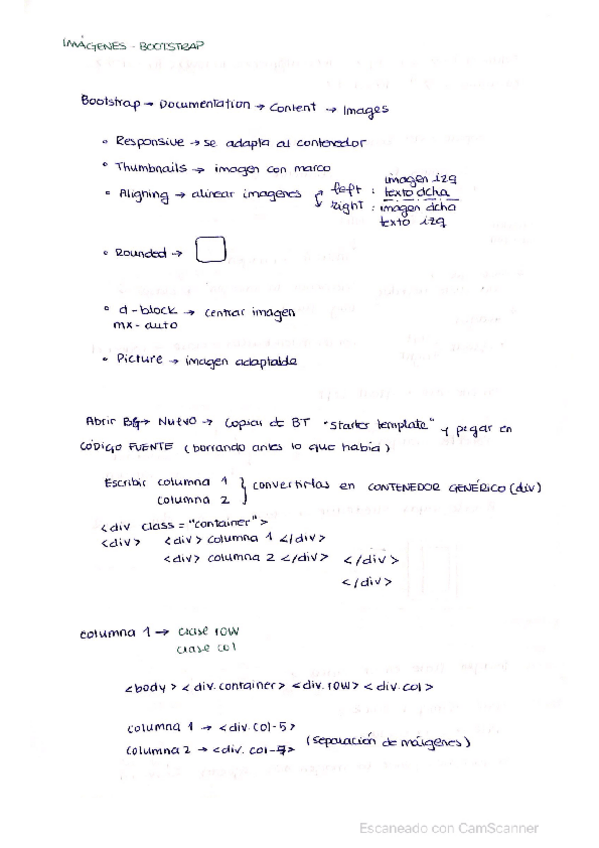 IMÁGENES - BOOTSTRAP
Bootstrap → Documentation → Content → Images
• Responsive → se adapta al contenedor
• Thumbnails → imagen con marco
• Aligning → alinear imagenes
left : imagen izq
texto dcha
right : imagen dcha
texto izq
• Rounded →
• d-block → centrar imagen
mx-auto
• Picture → imagen adaptable
Abrir BG → Nuevo → Copiar de BT "starter template" y pegar en
CÓDIGO FUENTE (borrando antes lo que había)
Escribir columna 1
columna 2 } convertirlas en CONTENEDOR GENÉRICO (div)
<div class = "container">
<div> <div> columna 1 </div>
<div> columna 2 </div> </div>
</div>
columna 1 → clase row
clase col
<body> <div.container> <div.row> <div.col>
columna 1 → <div.col-5>
columna 2 → <div.col-7> (separación de márgenes)
Escaneado con CamScanner